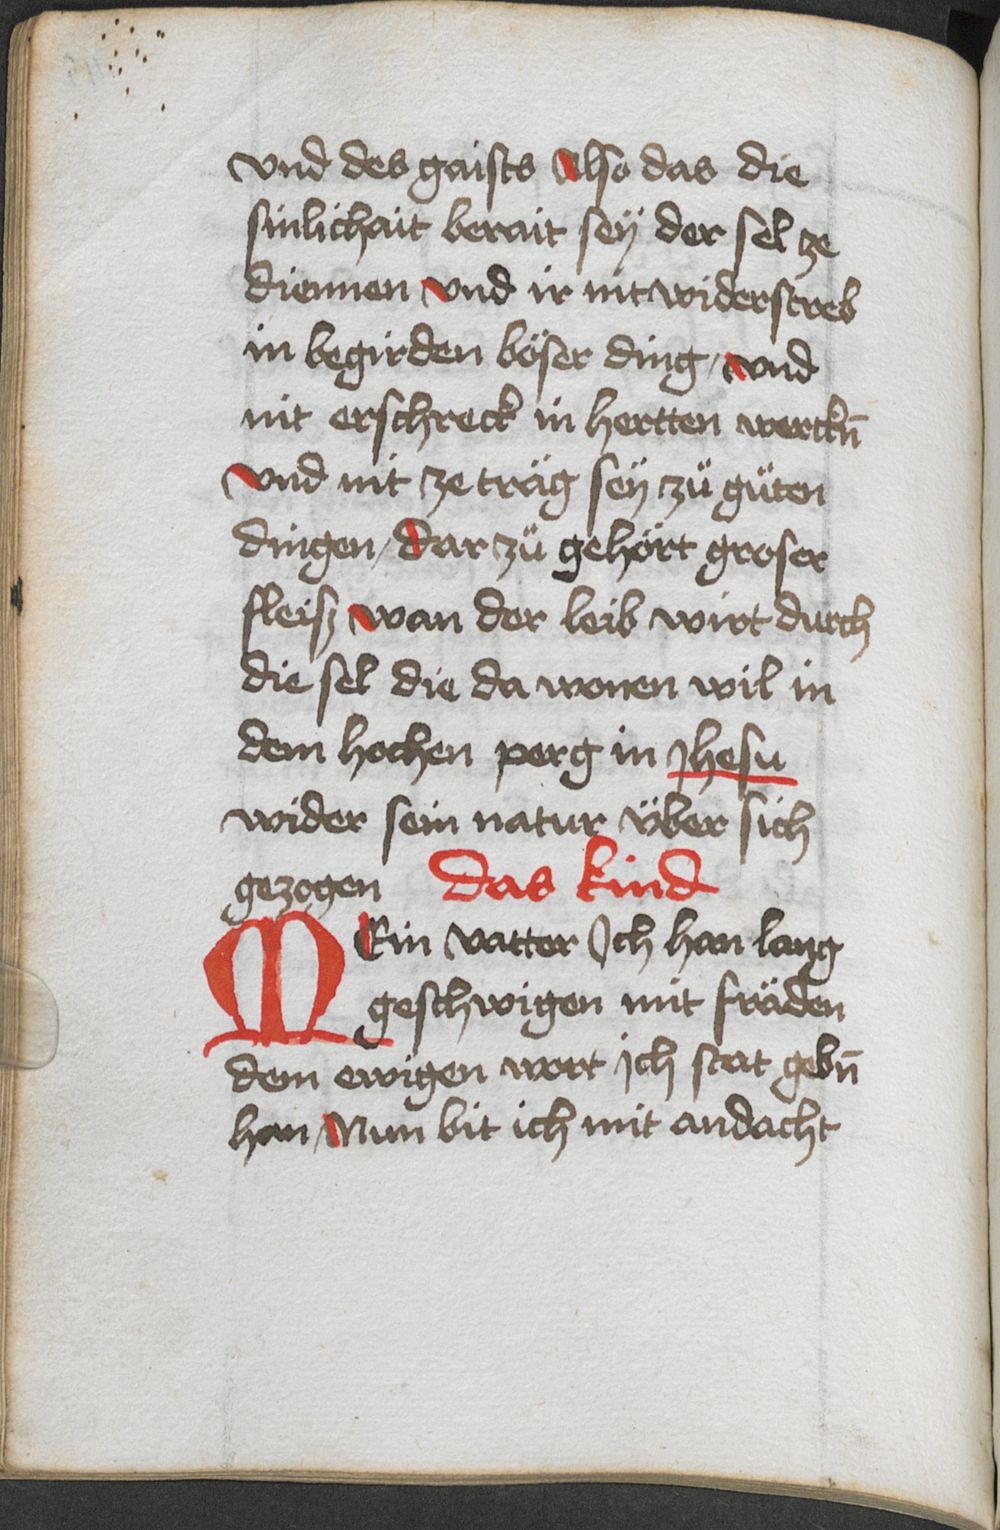 vnd des gaists Also das die
sinlichait berait seÿ der sel ze
diennen vnd ir nit widerstreb
in begirden böser ding / vnd
nit erschreck in hertten werckn̄
vnd nit ze träg seÿ zů gůten
dingen / dar zů gehört groser
fleisz wan der leib wirt durch
die sel die da wonen wil in
dem hochen perg in Jhesu
wider sein natur über sich
gezogen das kind
MEin vatter Ich han lang
geschwigen mit fräden
dem ewigen wort jch stat gebn̄
han / Nun bit ich mit andacht